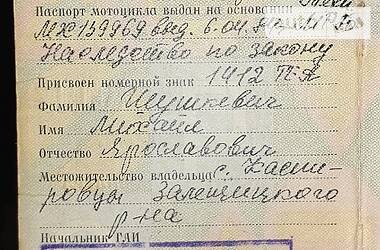 Паспорт мотоцикла выдан на основании
МХ 139969 выд. 6.04.
Наследство по закону
Присвоен номерной знак 1412 ТПА
Фамилия Шушкевич
Имя Михаил
Отчество Ярославович
Местожительство владельца с. Каспи-
ровцы Залещицкого
р-на
Начальник ГАИ